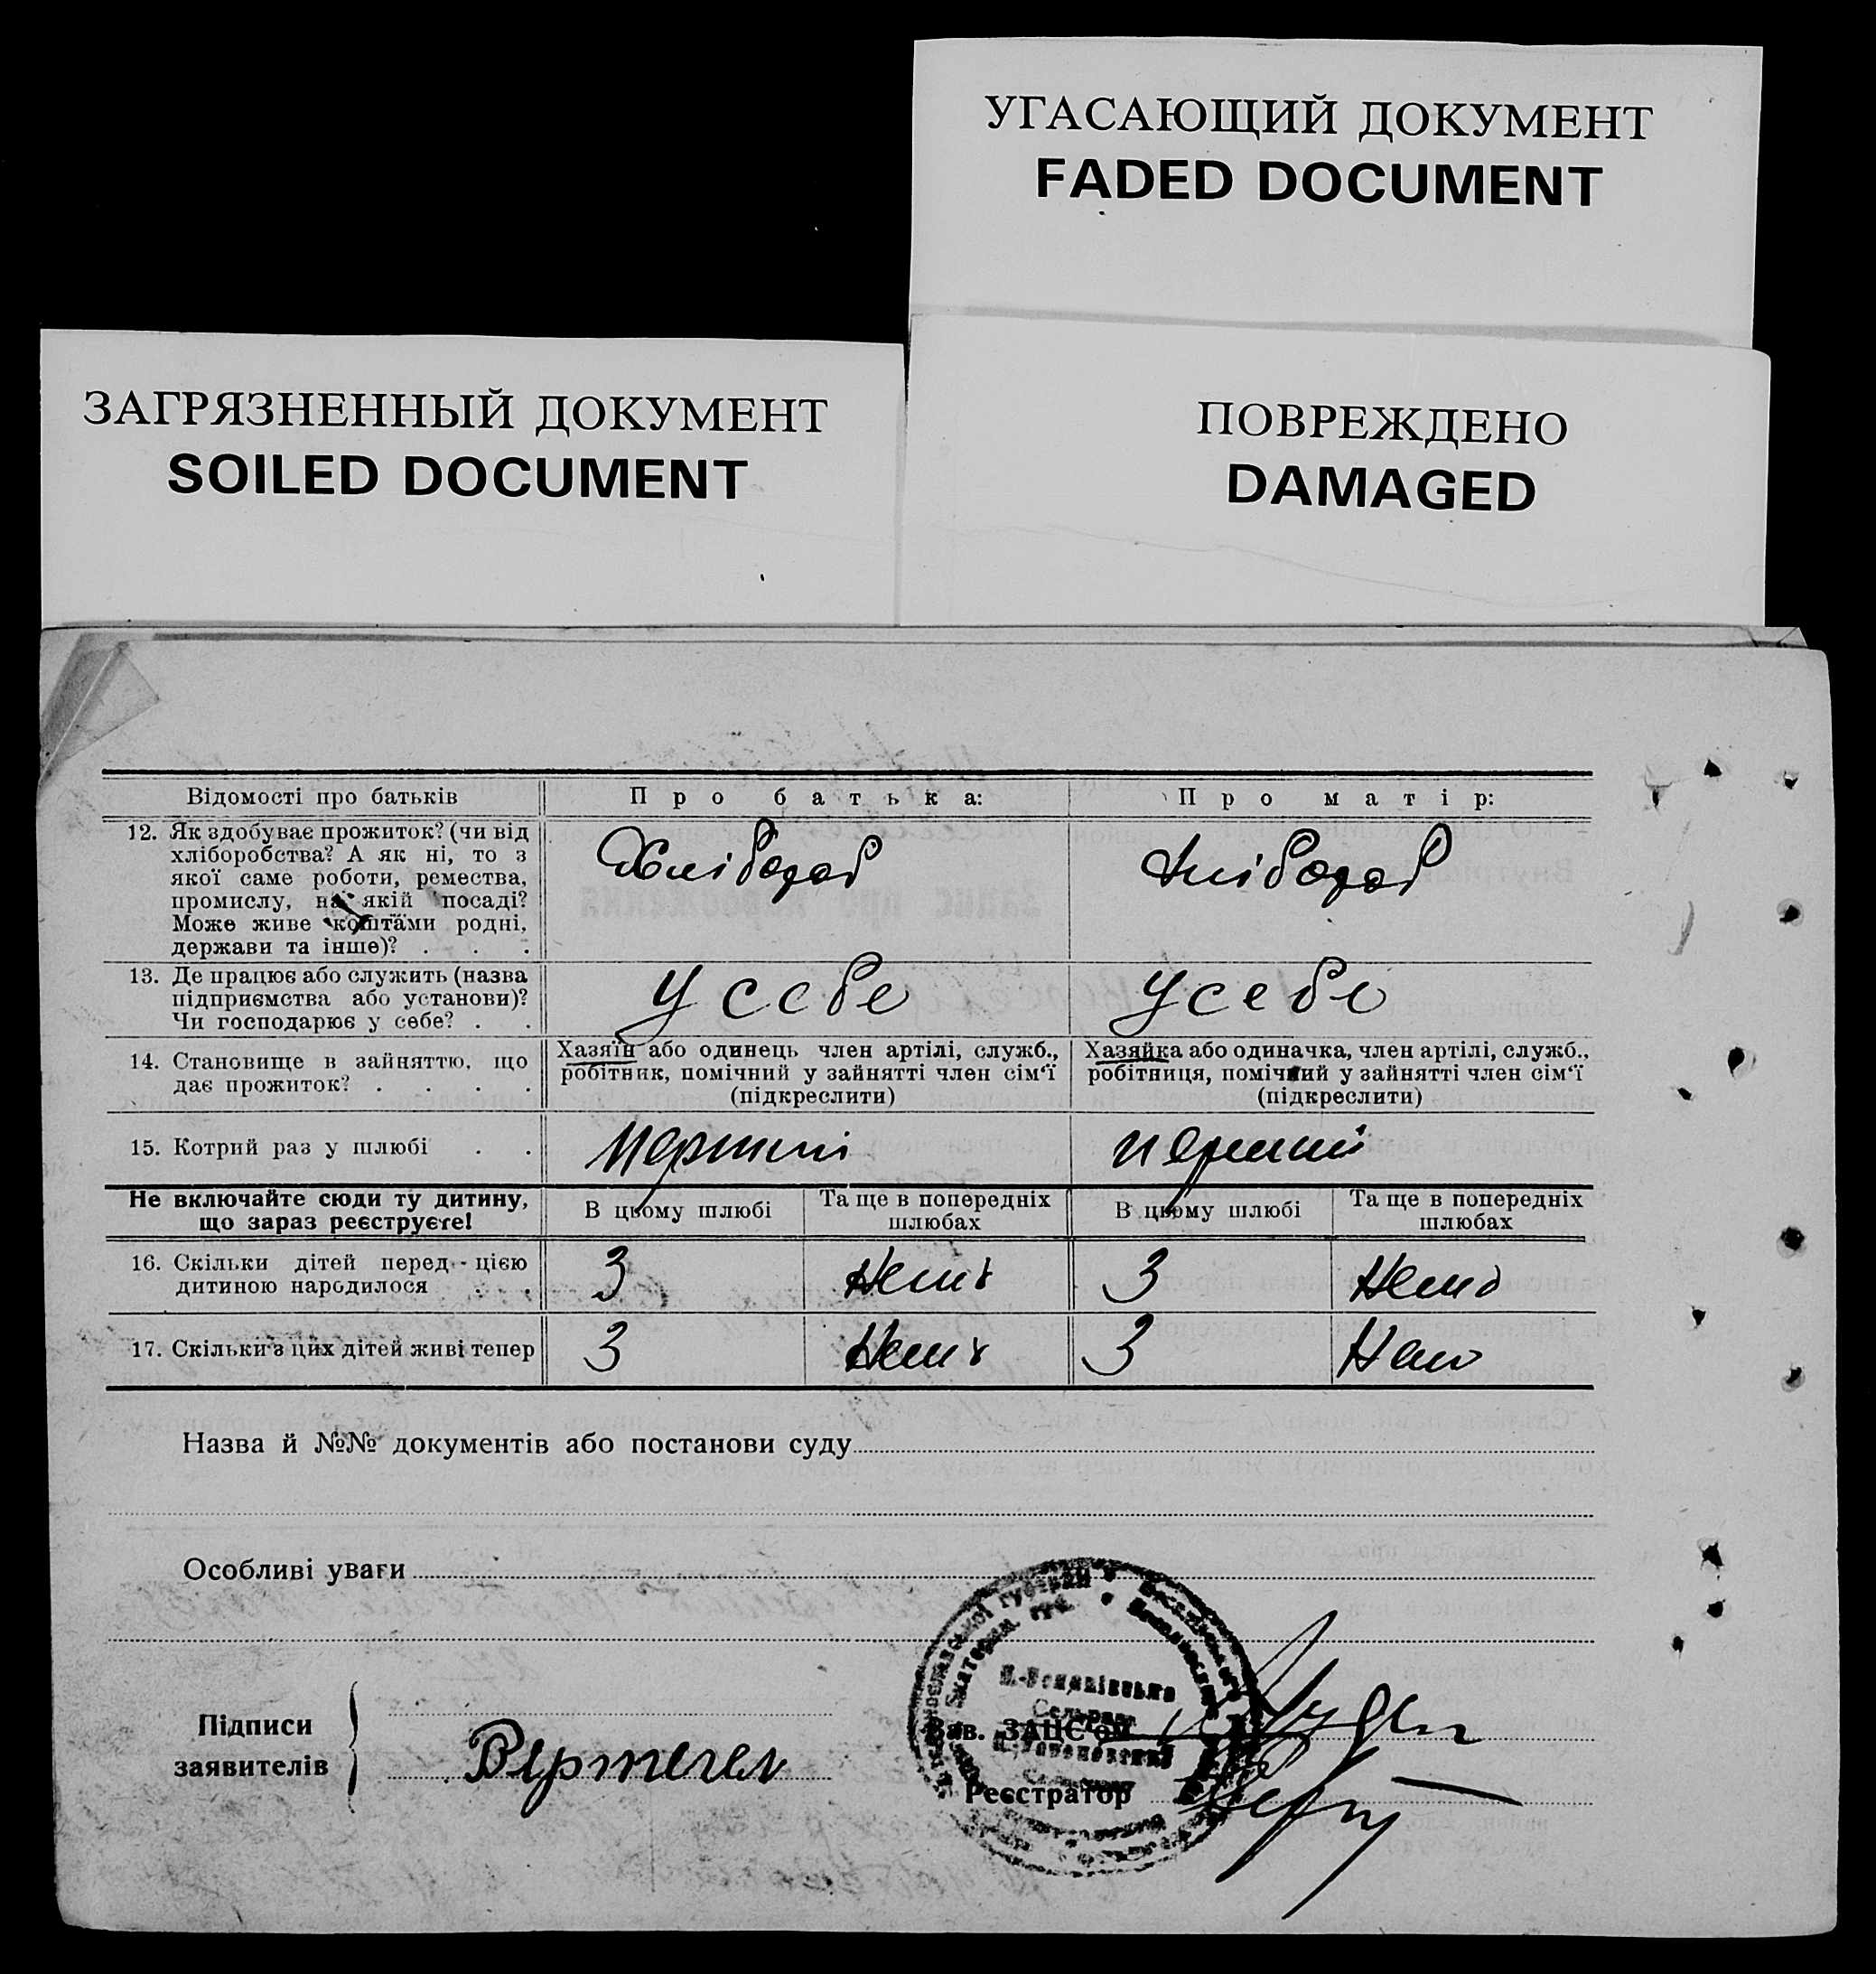 УГАСАЮЩИЙ ДОКУМЕНТ
FADED DOCUMENT
ЗАГРЯЗНЕННЫЙ ДОКУМЕНТ
SOILED DOCUMENT
ПОВРЕЖДЕНО
DAMAGED
Відомості про батьків
Про батька:
Про матір:
12. Як здобуває прожиток? (чи від
хліборобства? А як ні, то з
якої саме роботи, ремества,
промислу, на якій посаді?
Може живе коштами родні,
держави та інше)? . . .
Хлібороб
Хлібороб
13. Де працює або служить (назва
підприємства або установи)?
Чи господарює у себе? . .
У себе
У себе
14. Становище в зайняттю, що
дає прожиток? . . . .
Хазяїн або одинець член артілі, служб.,
робітник, помічний у зайнятті член сім'ї
(підкреслити)
Хазяйка або одиначка, член артілі, служб.,
робітниця, помічний у зайнятті член сім'ї
(підкреслити)
15. Котрий раз у шлюбі . .
Перший
Перший
Не включайте сюди ту дитину,
що зараз реєструєте!
В цьому шлюбі
Та ще в попередніх
шлюбах
В цьому шлюбі
Та ще в попередніх
шлюбах
16. Скільки дітей перед - цією
дитиною народилося . .
3
Нема
3
Нема
17. Скільки з цих дітей живі тепер
3
Нема
3
Нема
Назва й №№ документів або постанови суду
Особливі уваги
Підписи
заявителів
Зав. ЗАЦС'ом
Реєстратор